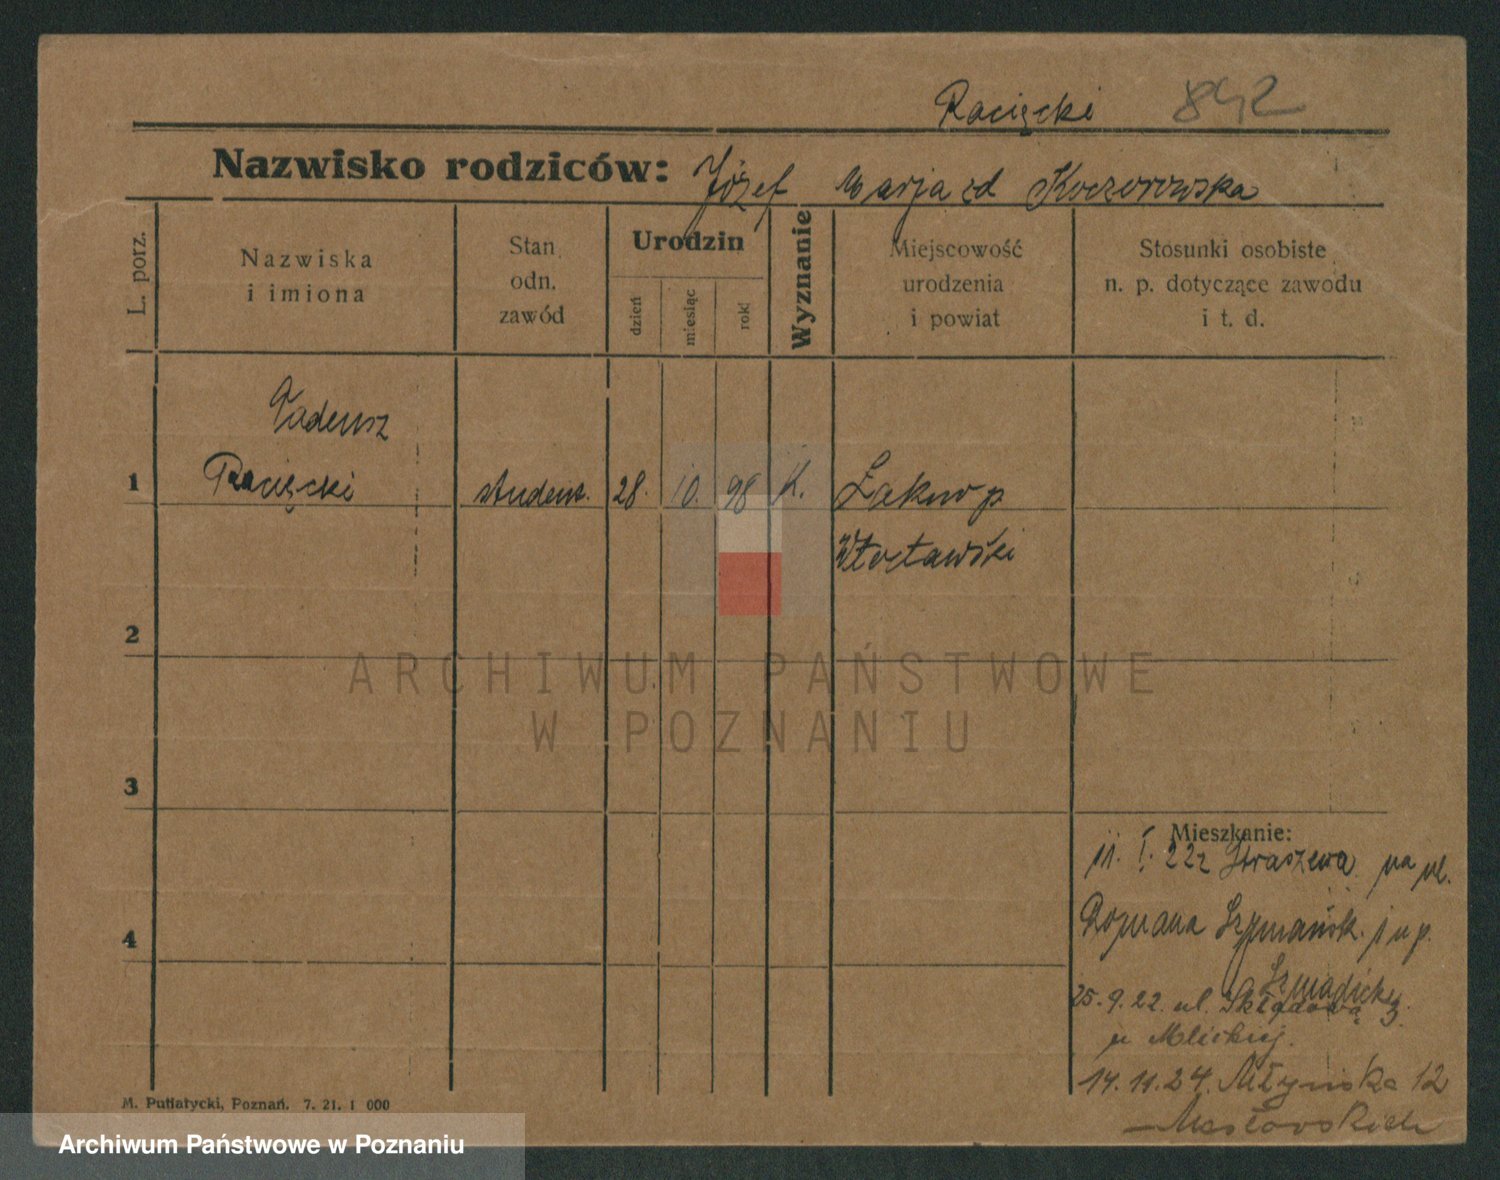 Racięcki 842
Nazwisko rodziców: Józef Marja zd Koczorowska
L. porz.
Nazwiska
i imiona
Stan
odn.
zawód
Urodzin
dzień
miesiąc
rok
Wyznanie
Miejscowość
urodzenia
i powiat
Stosunki osobiste
n. p. dotyczące zawodu
i t. d.
Tadeusz
1 Racięcki student. 28. 10. 98 K. Żakowp
Włocławski
2
ARCHIWUM PAŃSTWOWE
W POZNANIU
3
Mieszkanie:
11. I. 22 z Straszewa na ul.
Romana Szymańsk. 1 u p.
25.9.22. ul. Składowa 3.
u
14.11.24. Młyńska 12
4
M. Putiatycki, Poznań. 7. 21. 1 000
Archiwum Państwowe w Poznaniu